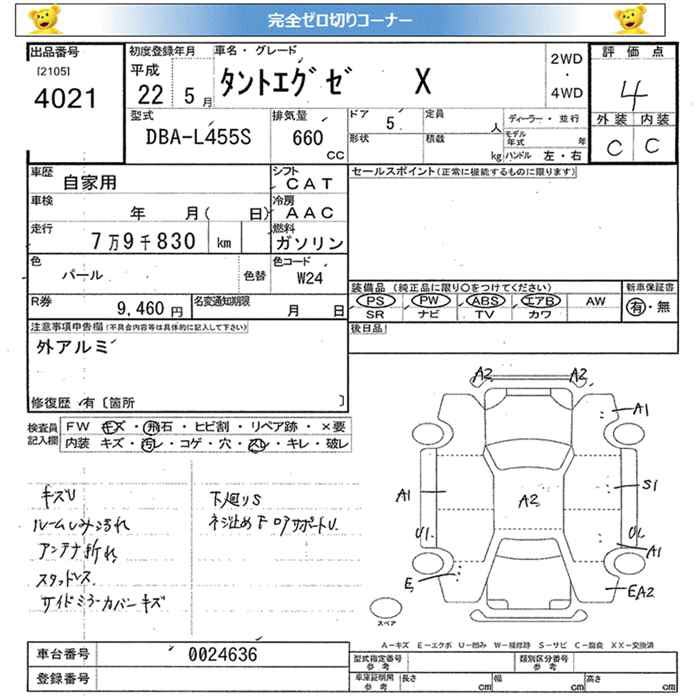 完全ゼロ切りコーナー
出品番号
[2105]
4021
初度登録年月
平成
22 5月
車名・グレード
タントエグゼ X
2WD
・
4WD
評価点
4
外装 内装
C C
型式
DBA-L455S
排気量
660
CC
ドア
5
形状
定員
人
積載
kg
ディーラー・並行
モデル年式 年
ハンドル 左・右
車歴
自家用
シフト
CAT
車検
年 月( 日)
冷房
AAC
走行
7万9千830 km
燃料
ガソリン
色
パール
色替
色コード
W24
R券
9,460円
名変通知期限
月 日
セールスポイント(正常に機能するものに限ります)
装備品(純正品に限り○をつけてください)
PS PW ABS エアB AW
SR ナビ TV カワ
新車保証書
有・無
後日品
注意事項申告欄(不具合内容等は具体的に記入して下さい)
外アルミ
修復歴 有〔箇所 〕
検査員記入欄
FW キズ・飛石・ヒビ割・リペア跡・×要
内装 キズ・汚レ・コゲ・穴・スレ・キレ・破レ
キズU
ルームしみ汚れ
アンテナ折れ
スタッドレス
サイドミラーカバーキズ
下廻りS
A2 A2
A1
A1
A2
S1
U1
U1
A1
E
EA2
スペア
A－キズ E－エクボ U－凹み W－補修跡 S－サビ C－腐食 XX－交換済
車台番号
0024636
登録番号
型式指定番号
参考
類別区分番号
参考
車庫証明用
参考
長さ cm
幅 cm
高さ cm